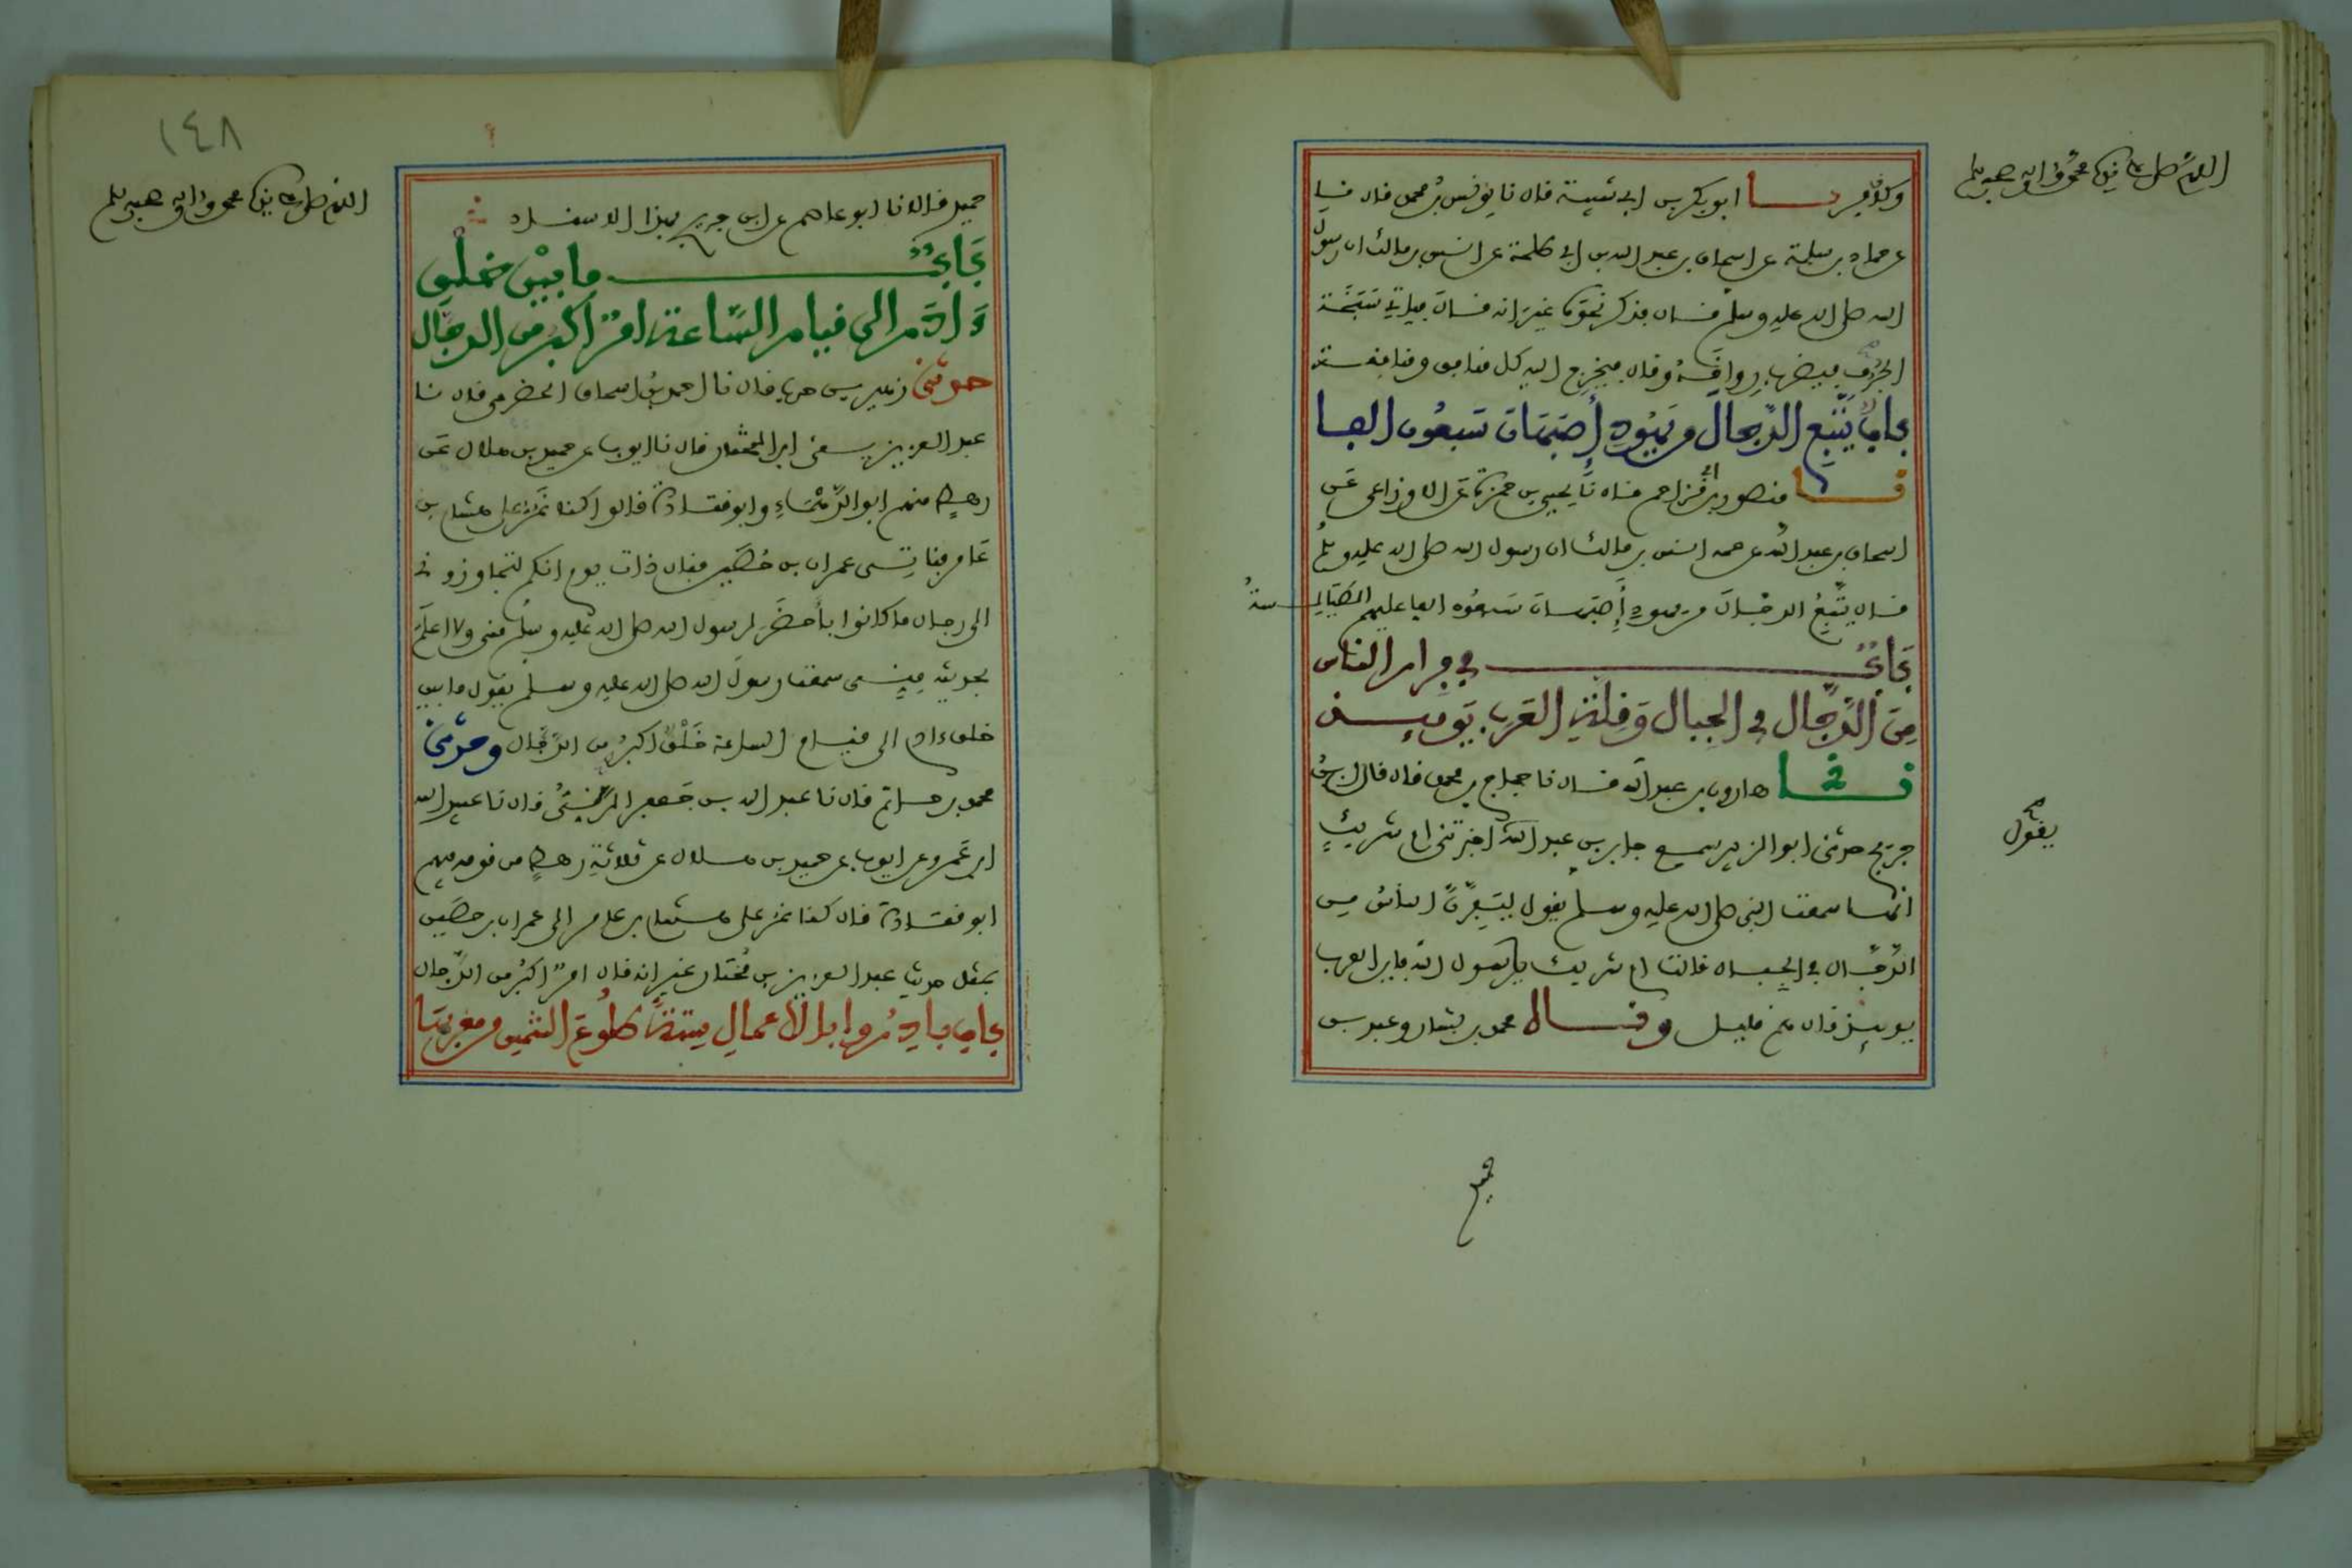 اللهم صل على نبينا محمد وءاله وصحبه وسلم
ابو بكر بن ابي شيبة قال نا يونس بن محمد قال نا
عن حماد بن سلمة عن اسحاق بن عبد الله بن ابي طلحة عن انس بن مالك ان رسول
الله صلى الله عليه وسلم قال فذكر نحوه غير انه قال فياتي سبخة
الجرف فيضرب رواقه وقال فيخرج اليه كل منافق ومنافقة
باب يتبع الدجال من يهود أصبهان سبعون الفا
نا منصور بن ابي مزاحم قال نا يحيى بن حمزة عن الاوزاعي عن
اسحاق بن عبد الله عن عمه انس بن مالك ان رسول الله صلى الله عليه وسلم
قال يتبع الدجال من يهود أصبهان سبعون الفا عليهم الطيالسة
باب في فرار الناس
من الدجال في الجبال وقلة العرب يومئذ
نا هارون بن عبد الله قال نا حجاج بن محمد قال قال ابن
جريج حدثني ابو الزبير سمع جابر بن عبد الله اخبرتني ام شريك
يقول
انها سمعت النبي صلى الله عليه وسلم يقول ليفرن الناس من
الدجال في الجبال قالت ام شريك يا رسول الله فاين العرب
يومئذ قال هم قليل وقال محمد بن بشار وعبد بن
حميد
١٤٨
اللهم صل على نبينا محمد وءاله وصحبه وسلم
حميد قالا نا ابو عاصم عن ابن جريج بهذا الاسناد
باب ما بين خلق
ءادم الى قيام الساعة امر اكبر من الدجال
حدثني زهير بن حرب قال نا احمد بن اسحاق الحضرمي قال نا
عبد العزيز يعني ابن المختار قال نا ايوب عن حميد بن هلال عن
رهط منهم ابو الدهماء وابو قتادة قالوا كنا نمر على هشام بن
عامر فناتي عمران بن حصين فقال ذات يوم انكم لتجاوزوني
الى رجال ما كانوا بأحضر لرسول الله صلى الله عليه وسلم مني ولا اعلم
بحديثه مني سمعت رسول الله صلى الله عليه وسلم يقول ما بين
خلق ءادم الى قيام الساعة خلق اكبر من الدجال وحدثني
محمد بن حاتم قال نا عبد الله بن جعفر الرقي قال نا عبيد الله
ابن عمرو عن ايوب عن حميد بن هلال عن ثلاثة رهط من قومه فيهم
ابو قتادة قال كنا نمر على هشام بن عامر الى عمران بن حصين
بمثل حديث عبد العزيز بن مختار غير انه قال امر اكبر من الدجال
باب بادروا بالأعمال ستة طلوع الشمس من مغربها